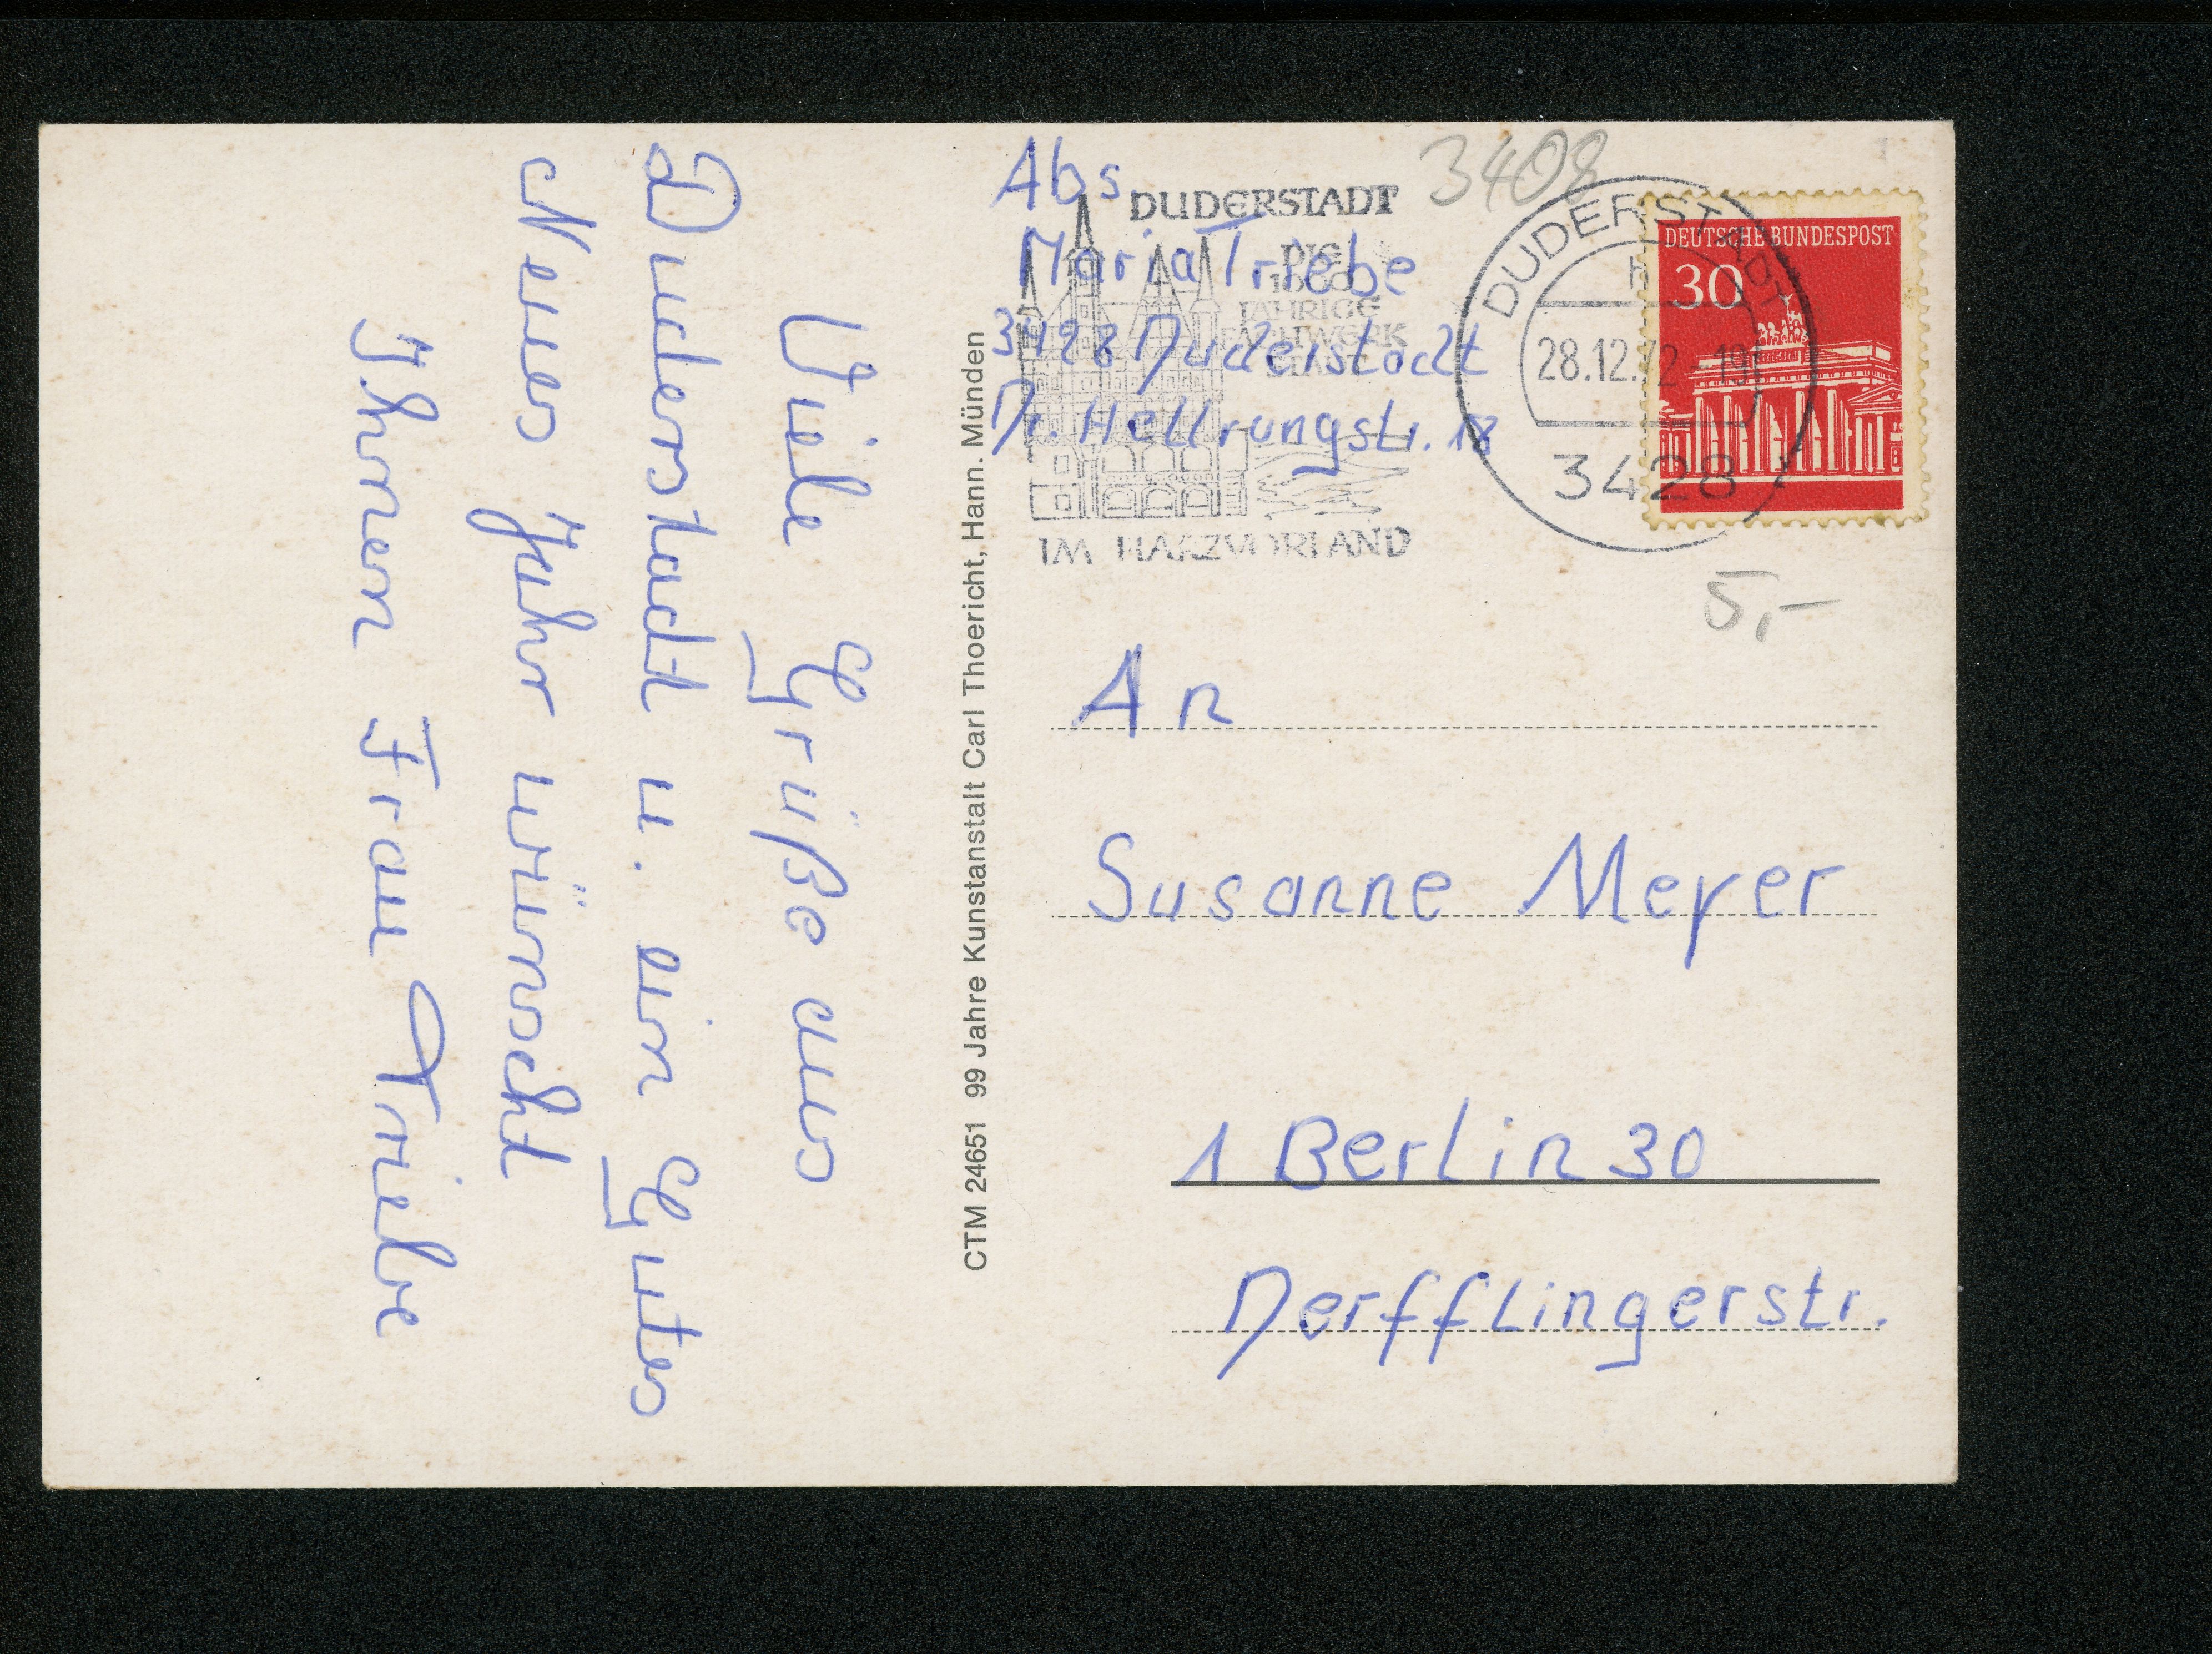 Viele Grüße aus
Duderstadt u. ein Gutes
Neues Jahr wünscht
Ihnen Frau Triebe
CTM 24651 99 Jahre Kunstanstalt Carl Thoericht, Hann. Münden
Abs
Maria Triebe
3428 Duderstadt
Dr. Hellrungstr. 18
DUDERSTADT
DIE
1000
JÄHRIGE
FACHWERK
STADT
IM HARZVORLAND
3408
DUDERSTADT
h
28.12.72-19
3428
DEUTSCHE BUNDESPOST
30
5,-
An
Susanne Meyer
1 Berlin 30
Derfflingerstr.